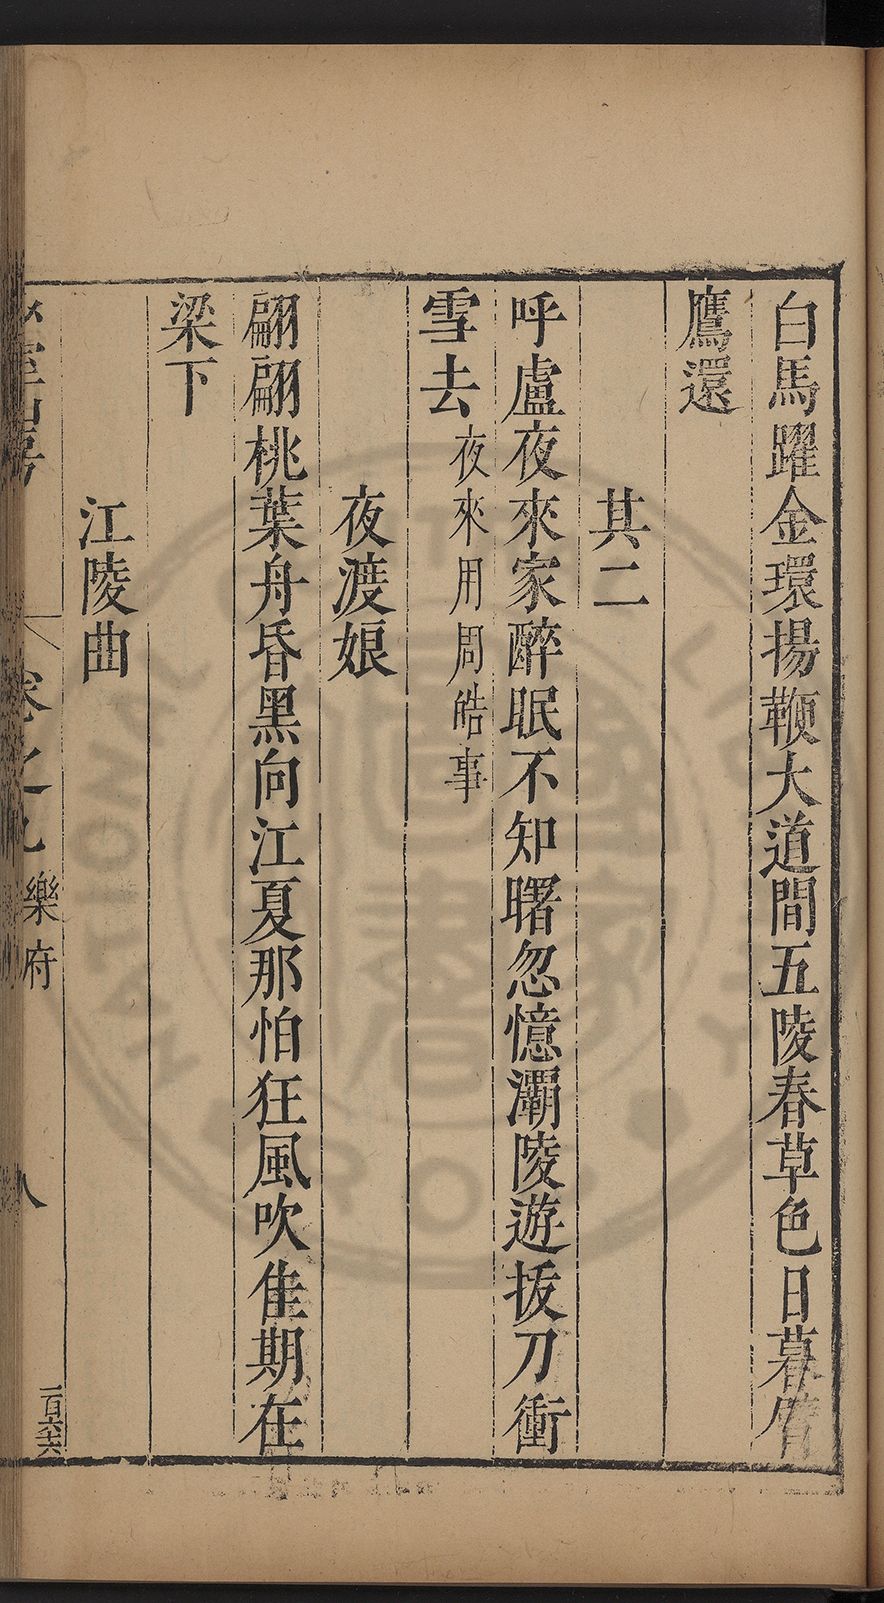 白馬躍金環揚鞭大道間五陵春草色日暮臂
鷹還
其二
呼盧夜來家醉眠不知曙忽憶灞陵遊拔刀衝
雪去夜來用周皓事
夜渡娘
翩翩桃葉舟昏黑向江夏那怕狂風吹佳期在
梁下
江陵曲
卷之九 樂府 八